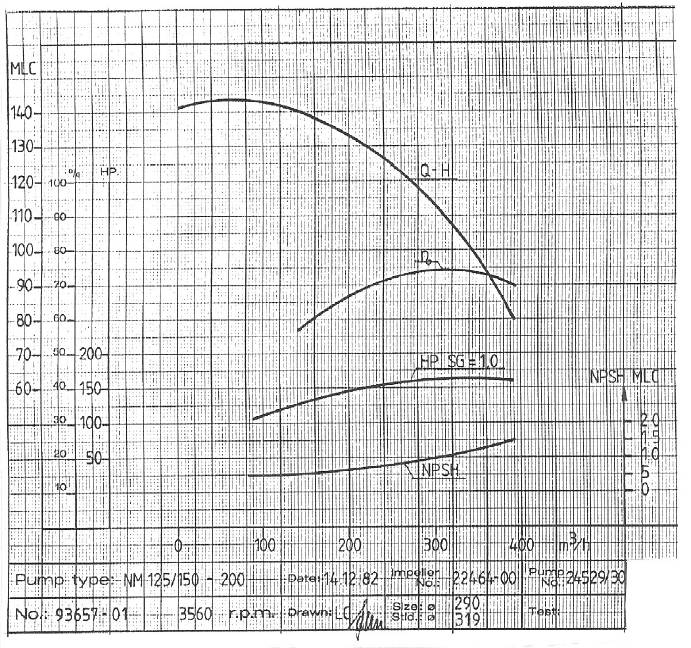 MLC
140
130
120
110
100
90
80
70
60
% HP.
100
90
80
70
60
50 200
40 150
30 100
20 50
10
Q-H
HP SG=1.0
NPSH
NPSH MLC
20
15
10
5
0
0 100 200 300 400 m³/h
Pump type: NM 125/150 - 200 Date: 14.12.82 Impeller No.: 22464-00 Pump No.: 24529/30
No.: 93657-01 3560 r.p.m. Drawn: LC Size: ø 290 Std.: ø 319 Test: